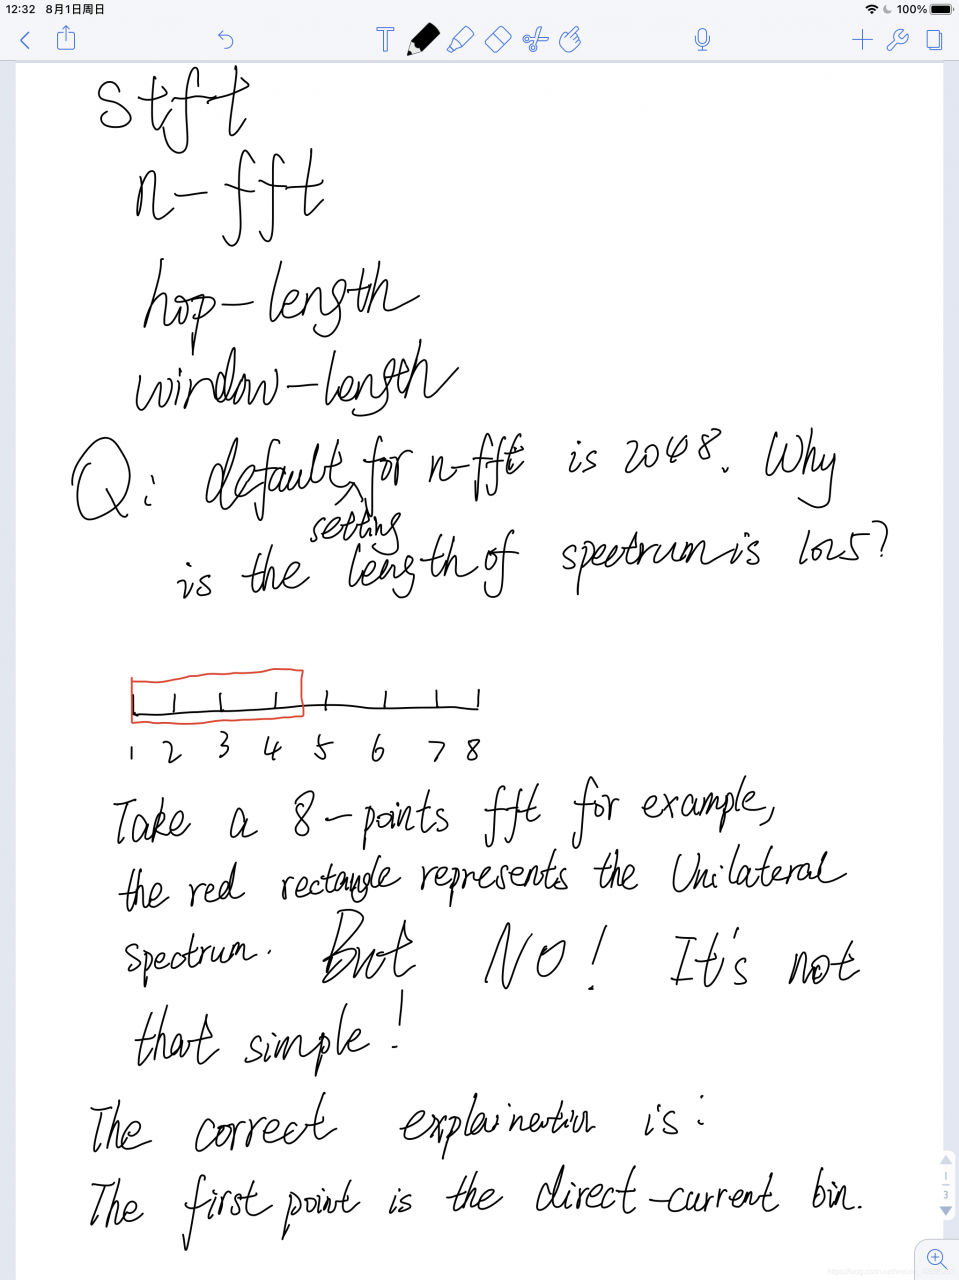 12:32 8月1日周日
100%
stft
n-fft
hop-length
window-length
Q: default for n-fft is 2048. Why
setting
is the length of spectrum is 1025?
1 2 3 4 5 6 7 8
Take a 8-points fft for example,
the red rectangle represents the Unilateral
spectrum. But NO! It's not
that simple!
The correct explaination is:
The first point is the direct-current bin.
1
3